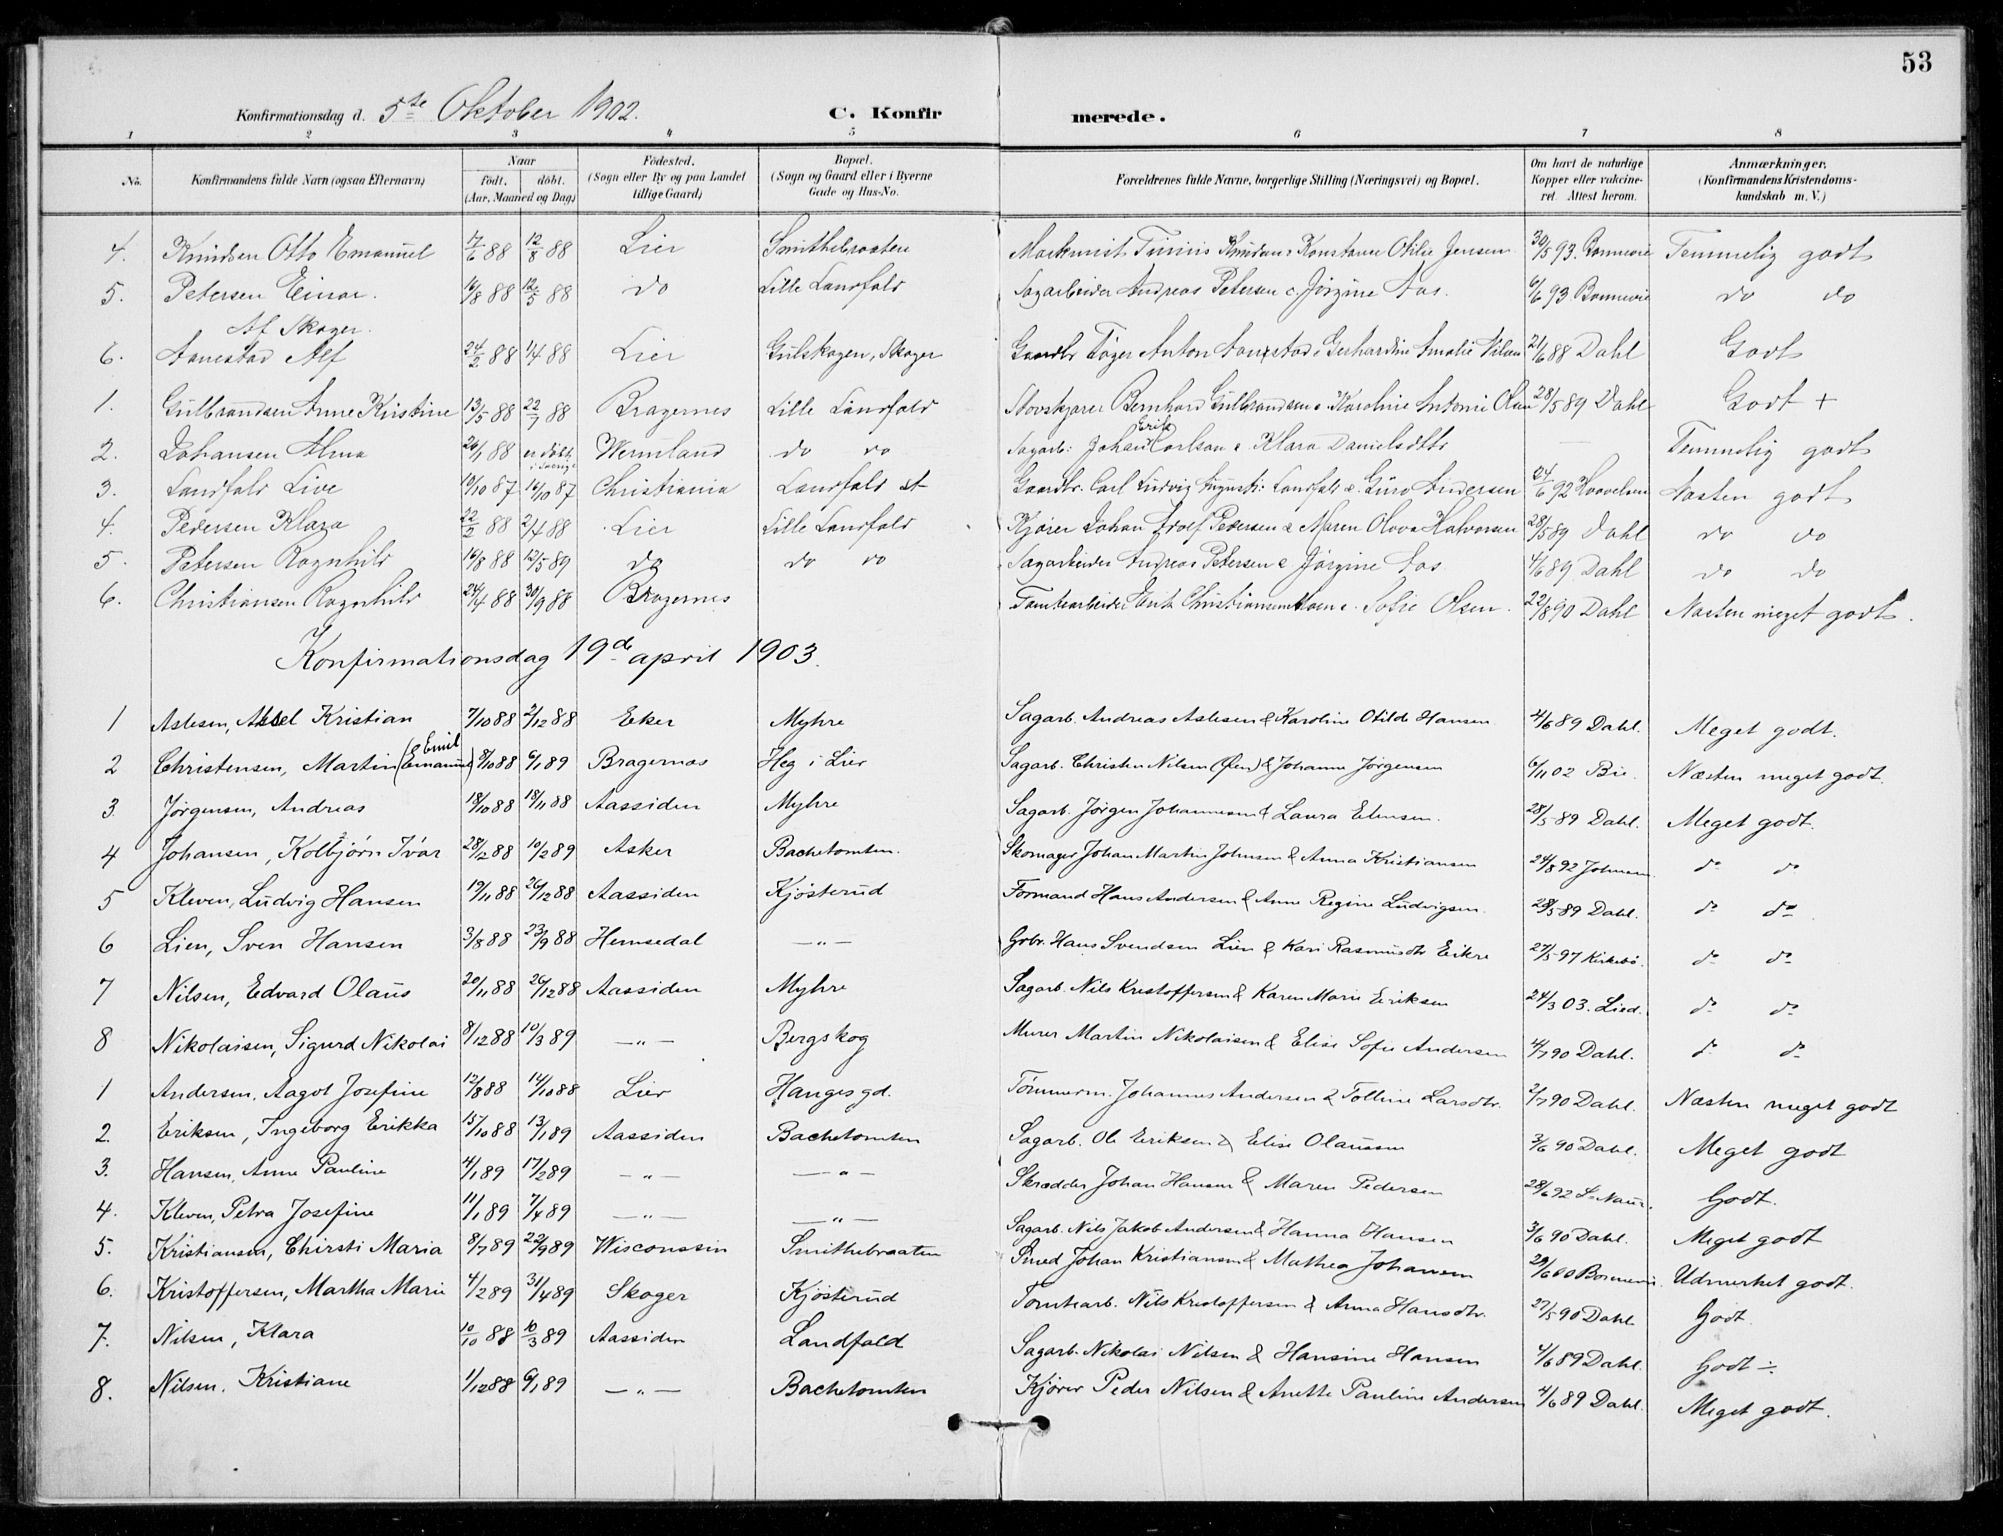 53
Konfirmationsdag d. 5te Oktober 1902. C. Konfirmerede.
1 2 3 4 5 6 7 8
No. Konfirmandens fulde Navn (ogsaa Efternavn) Naar födt. döbt. (Aar, Maaned og Dag) Födested. (Sogn eller By og paa Landet tillige Gaard) Bopæl. (Sogn og Gaard eller i Byerne Gade og Hus-No. Forældrenes fulde Navne, borgerlige Stilling (Næringsvei) og Bopæl. Om havt de naturlige Kopper eller vakcineret. Attest herom. Anmærkninger. (Konfirmandens Kristendomskundskab m. V.)
4. Knudsen Otto Emanuel 7/6 88 12/8 88 Lier Smithebraaten Knudsen Konstance Otilie Jensen 30/5 93. Bonnevie Temmelig godt
5. Petersen Einar. 16/8 88 12/5 88 do Lille Landfald Sagarbeider Andreas Petersen e. Jörgine Aas. 6/6 93 Bonnevie do do
Af Skoger.
6. Aanestad Alf 24/2 88 1/4 88 Lier Gulskogen, Skoger Gaardbr Töger Anton Aanestad e. Gerhardine Amalie Nilsen 21/6 88 Dahl Godt
1. Gulbrandsen Anne Kirstine 13/5 88 22/7 88 Bragernes Lille Landfald Skovskjærer Bernhard Gulbrandsen e. Karoline Antonie Olsen 28/5 89 Dahl Godt +
2. Johansen Alma 26/1 88 er döbt i Sverige Wermland do do Sagarb: Johan Erik Carlson e Klara Danielsdtr — Temmelig godt
3. Landfald Live 10/10 87 16/10 87 Christiania Landfald st Gaardbr. Carl Ludvig August: Landfald e. Guro Andersen 24/6 92 Hoovelsen Næsten godt
4. Pedersen Klara 22/2 88 2/4 88 Lier Lille Landfald Kjörer Johan Adolf Pedersen e Maren Olava Halvorsen 28/5 89 Dahl do do
5. Petersen Ragnhild 16/8 88 12/5 89 do do do Sagarbeider Andreas Petersen e Jörgine Aas 4/6 89 Dahl do do
6. Christiansen Ragnhild 24/4 88 30/9 88 Bragernes Tomtearbeider Christiansen e. Sofie Olsen. 22/8 90 Dahl Næsten meget godt.
Konfirmationsdag 19de april 1903.
1 Aslesen, Aksel Kristian 7/10 88 2/12 88 Eker Myhre Sagarb. Andreas Aslesen & Karoline Otilde Hansen 4/6 89 Dahl. Meget godt.
2 Christensen, Martin (Emanuel) Emil 8/10 88 6/1 89 Bragernes Heg i Lier Sagarb. Christen Nilsen (Öen) & Johanne Jörgensen 6/11 02 Bie. Næsten meget godt.
3. Jörgensen, Andreas 18/10 88 18/11 88 Aassiden Myhre Sagarb. Jörgen Johannesen & Laura Elensen. 28/5 89 Dahl. Meget godt.
4 Johansen, Kolbjörn Ivar 28/12 88 10/2 89 Asker Bachetomten. Skomager Johan Martin Johnsen & Anna Kristiansen 24/8 92 Johnsen do do
5 Kleven, Ludvig Hansen 19/11 88 26/12 88 Aassiden Kjösterud Formand Hans Andersen & Anne Regine Ludvigsen. 28/5 89 Dahl. do do
6 Lien, Sven Hansen 3/8 88 23/9 88 Hemsedal —"— Grbr. Hans Svendsen Lien & Kari Rasmusdtr Eikre 27/5 97 Kirkebö. do do
7 Nilsen, Edvard Olaus 20/11 88 26/12 88 Aassiden Myhre Sagarb. Nils Kristoffersen & Karen Marie Eriksen 24/3 03. Lied. do do
8 Nikolaisen, Sigurd Nikolai 8/12 88 10/3 89 —"— Bergskog Murer Martin Nikolaisen & Elise Sofie Andersen 4/7 90 Dahl. do do
1 Andersen, Aagot Josefine 12/8 88 14/10 88 Lier Hanges gd. Tömmerm. Johannes Andersen & Tolline Larsdtr. 2/7 90 Dahl. Næsten meget godt
2. Eriksen, Ingeborg Erikka 15/10 88 13/1 89 Aassiden Bachetomten Sagarb. Ole Eriksen & Elise Olaussen 3/6 90 Dahl. Meget godt
3. Hansen, Anne Pauline 4/1 89 17/2 89 —"— —"— Skrædder Johan Hansen & Maren Pedersen 28/6 92 Godt.
4. Kleven, Petra Josefine 11/1 89 7/4 89 —"— —"— Sagarb. Nils Jakob Andersen & Hanna Hansen 3/6 90 Dahl. Meget godt
5. Kristiansen, Chirsti Maria 8/7 89 22/9 89 Wisconssin Smithebraaten Smed Johan Kristiansen & Mathea Johansen 29/6 00 Bonnevie. Udmerket godt.
6. Kristoffersen, Martha Marie 4/2 89 31/4 89 Skoger Kjösterud Tomtearb. Nils Kristoffersen & Anna Hansdtr. 27/5 90 Dahl Godt.
7. Nilsen, Klara 10/10 88 10/3 89 Aassiden Landfald Sagarb. Nikolai Nilsen & Hansine Hansen 4/6 89 Dahl. Godt ÷
8. Nilsen, Kristiane 1/12 88 6/1 89 —"— Bachetomten Kjörer Peder Nilsen & Anette Pauline Andersen 4/6 89 Dahl. Meget godt.